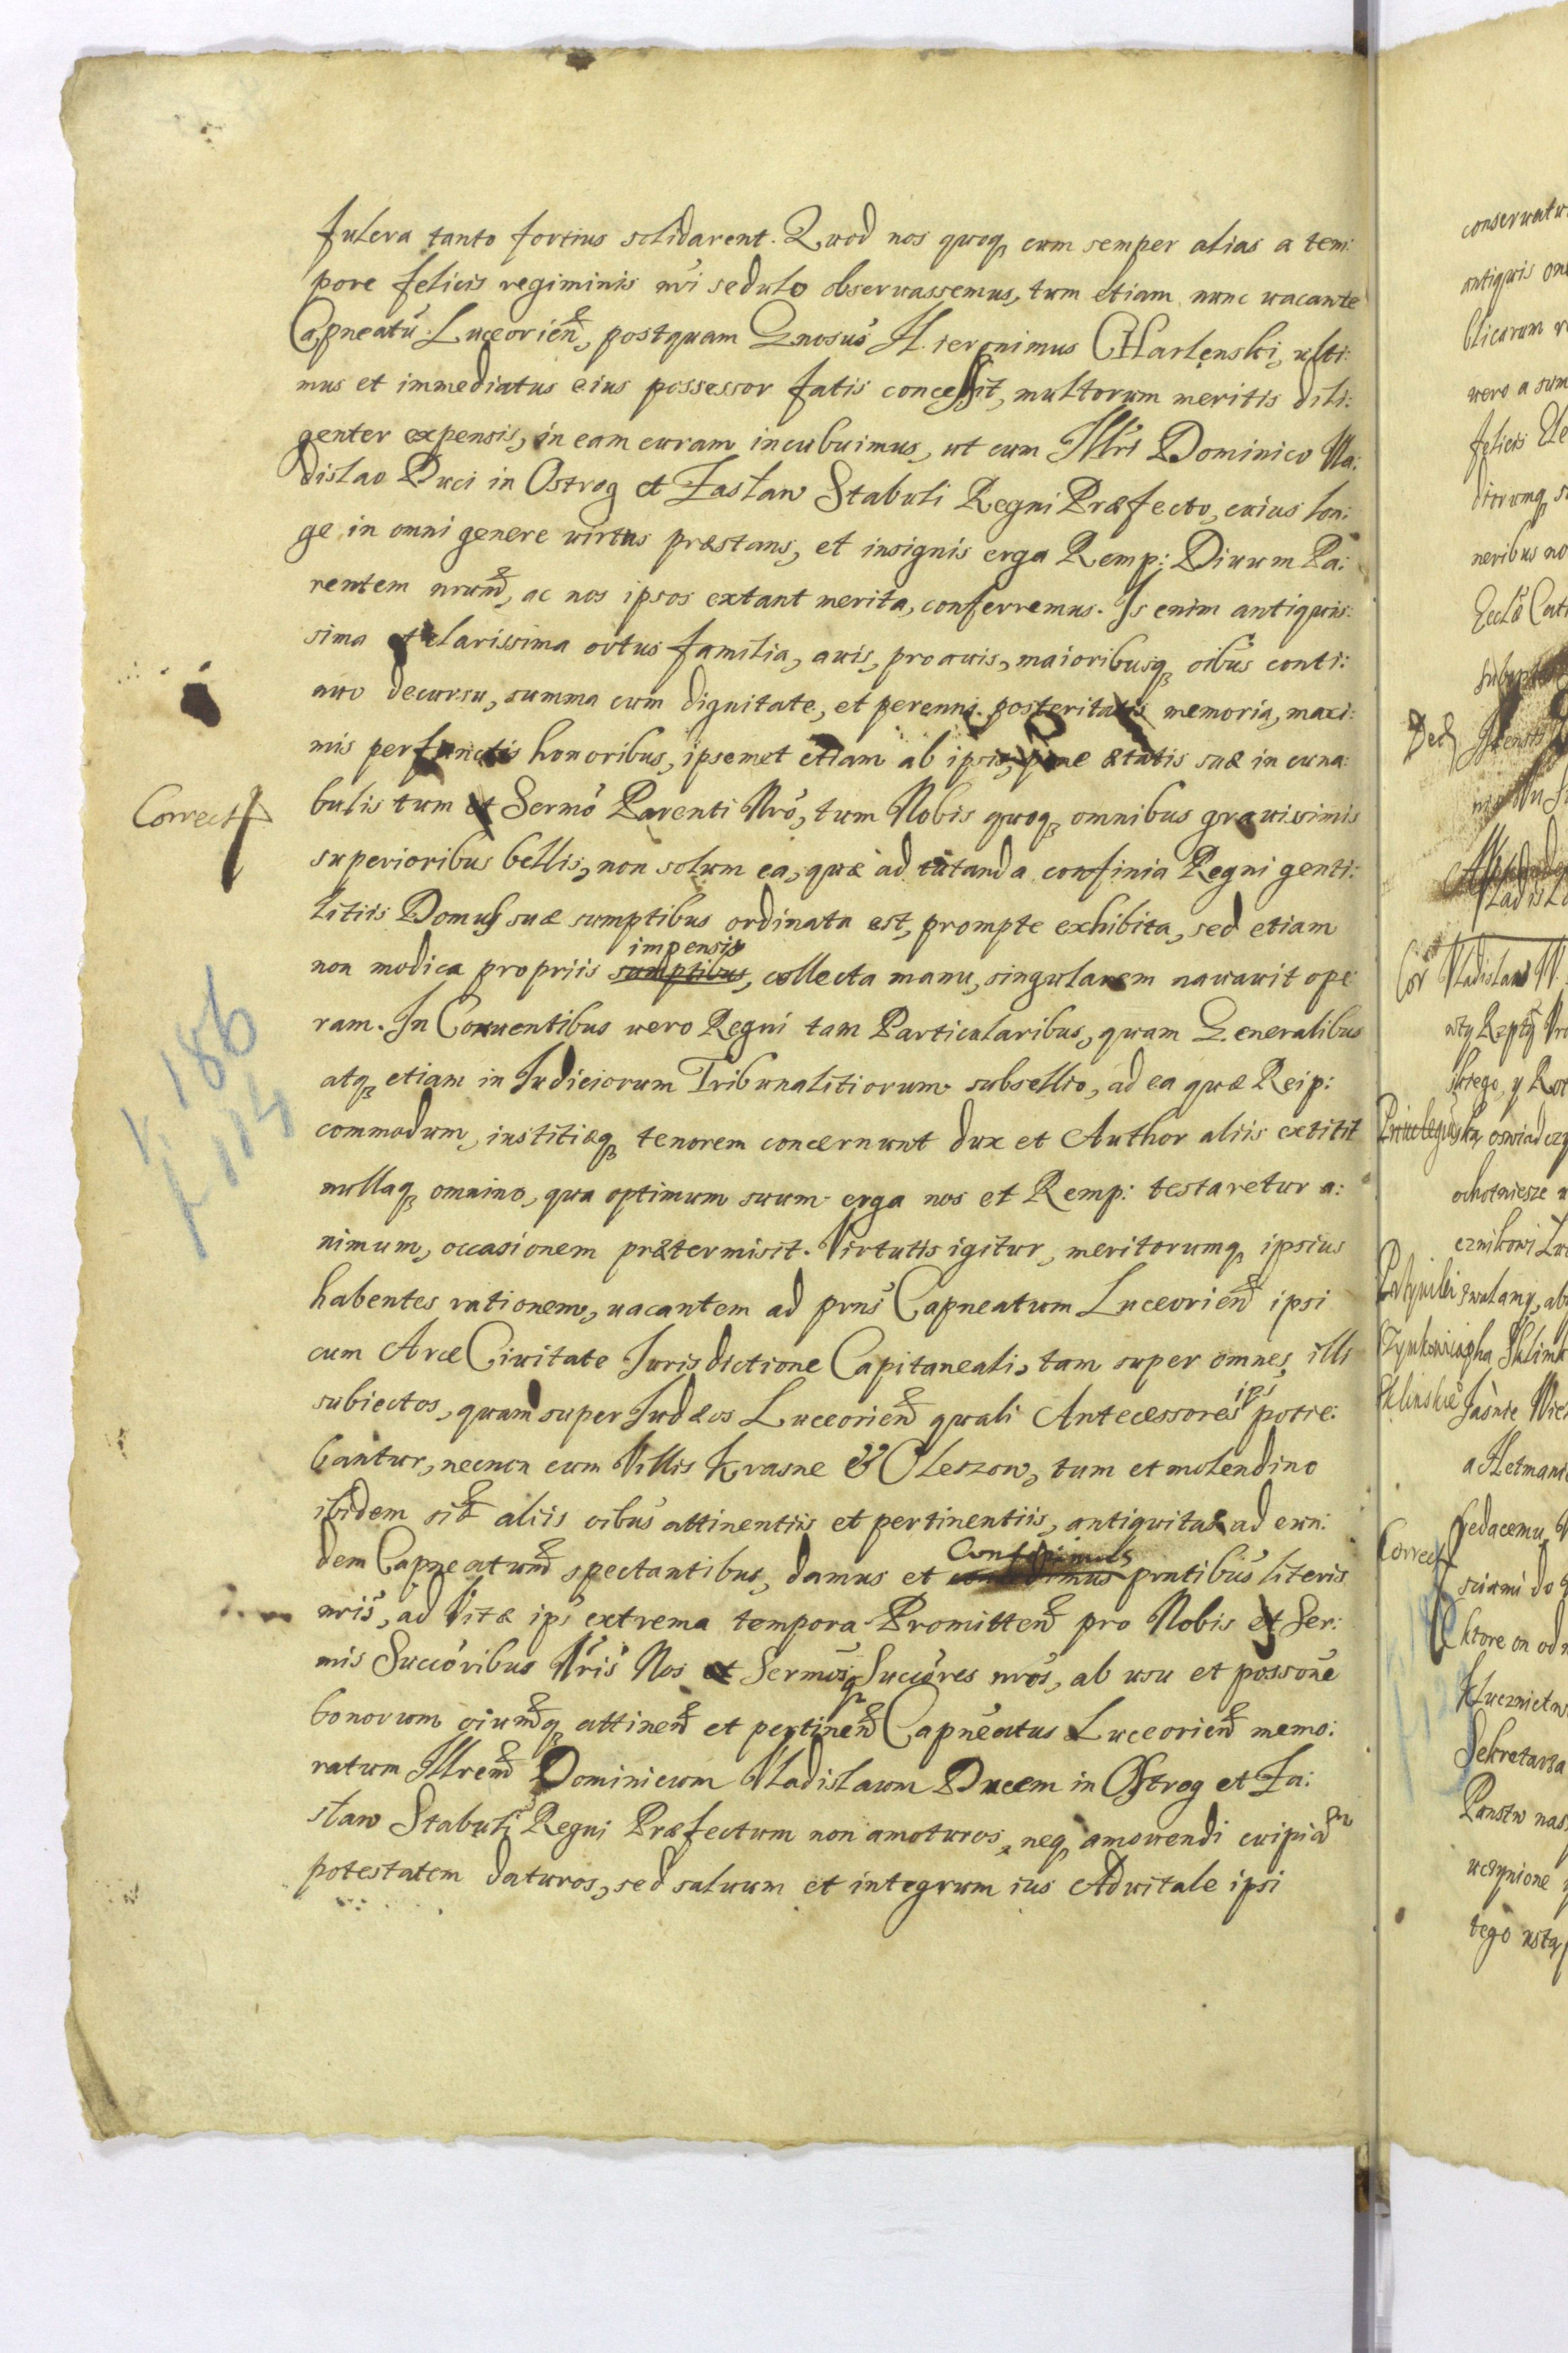 fulcra tanto fortius solidarent. Quod nos quoq cum semper alias a tem:
pore felicis regiminis nri sedulo obseruassemus, tum etiam nunc uacante
Capneatu Luceorien, postquam Gnosus Hieronimus CHarlenski, ulti:
mus et immediatus eius possessor fatis concessit, multorum meritis dili:
genter expensis, in eam curam incubuimus, ut cum Illri Dominico Vla:
dislao Duci in Ostrog et Zasław Stabuli Regni Præfecto, cuius lon:
ge in omni genere uirtus præstans, et insignis erga Remp: Diuum Pa:
rentem nrum, ac nos ipsos extant merita, conferremus. Is enim antiquis:
sima et clarissima ortus familia, auis, proauis, maioribusq oibus conti:
nuo decursu, summa cum dignitate, et perenni posteritatis memoria, maxi:
mis perfunctis honoribus, ipsemet etiam ab ipsis, pene ætatis suæ in cuna:
Correct
bulis tum et Sermo Parenti Nro, tum Nobis quoq omnibus grauissimis
superioribus bellis, non solum ea, quæ ad tutanda confinia Regni genti:
litiis Domus suæ sumptibus ordinata est, prompte exhibita, sed etiam
impensis
non modica propriis sumptibus, collecta manu, singularem nauauit ope
ram. In Conuentibus uero Regni tam Particularibus, quam Generalibus
atq etiam in Iudiciorum Tribunalitiorum subsellio, ad ea quæ Reip:
commodum, iustitiæq tenorem concernunt dux et Author aliis extitit
nullaq omnino, qua optimum suum erga nos et Remp: testaretur a:
nimum, occasionem prætermisit. Virtutis igitur, meritorumq ipsius
habentes rationem, uacantem ad prns Capneatum Luceorien ipsi
cum Arce Ciuitate Iurisdictione Capitaneali, tam super omnes illi
subiectos, quam super Iudæos Luceorien quali Antecessores ips potie:
bantur, necnon cum Villis Krasne & Oleszow, tum et molendino
ibidem sit aliis oibus attinentiis et pertinentiis, antiquitus ad eun:
dem Capneatum spectantibus, damus et conferimus prntibus literis
nris, ad Vitæ ips extrema tempora. Promitten pro Nobis et Ser:
mis Succoribus Nris Nos et Sermosq Succores nros, ab usu et possone
bonorum oiumq attinen et pertinen Capneatus Luceorien memo:
ratum Illrem Dominicum Vladislaum Ducem in Ostrog et Za:
sław Stabuli Regni Præfectum non amoturos, neq amouendi cuipiam
potestatem daturos, sed saluum et integrum ius Aduitale ipsi
K 186
K 114
conseruatu
antiquis
blicarum
uero a sum
felicis Ele
neribus no
Ded
Cor Vladislaus
skiego, y
oswiadczy
ochotniesze
Jaśnie Wie
a Hetmani
Correct
ktore on od
Sekretarza
Panstw nas
uczynione
tego